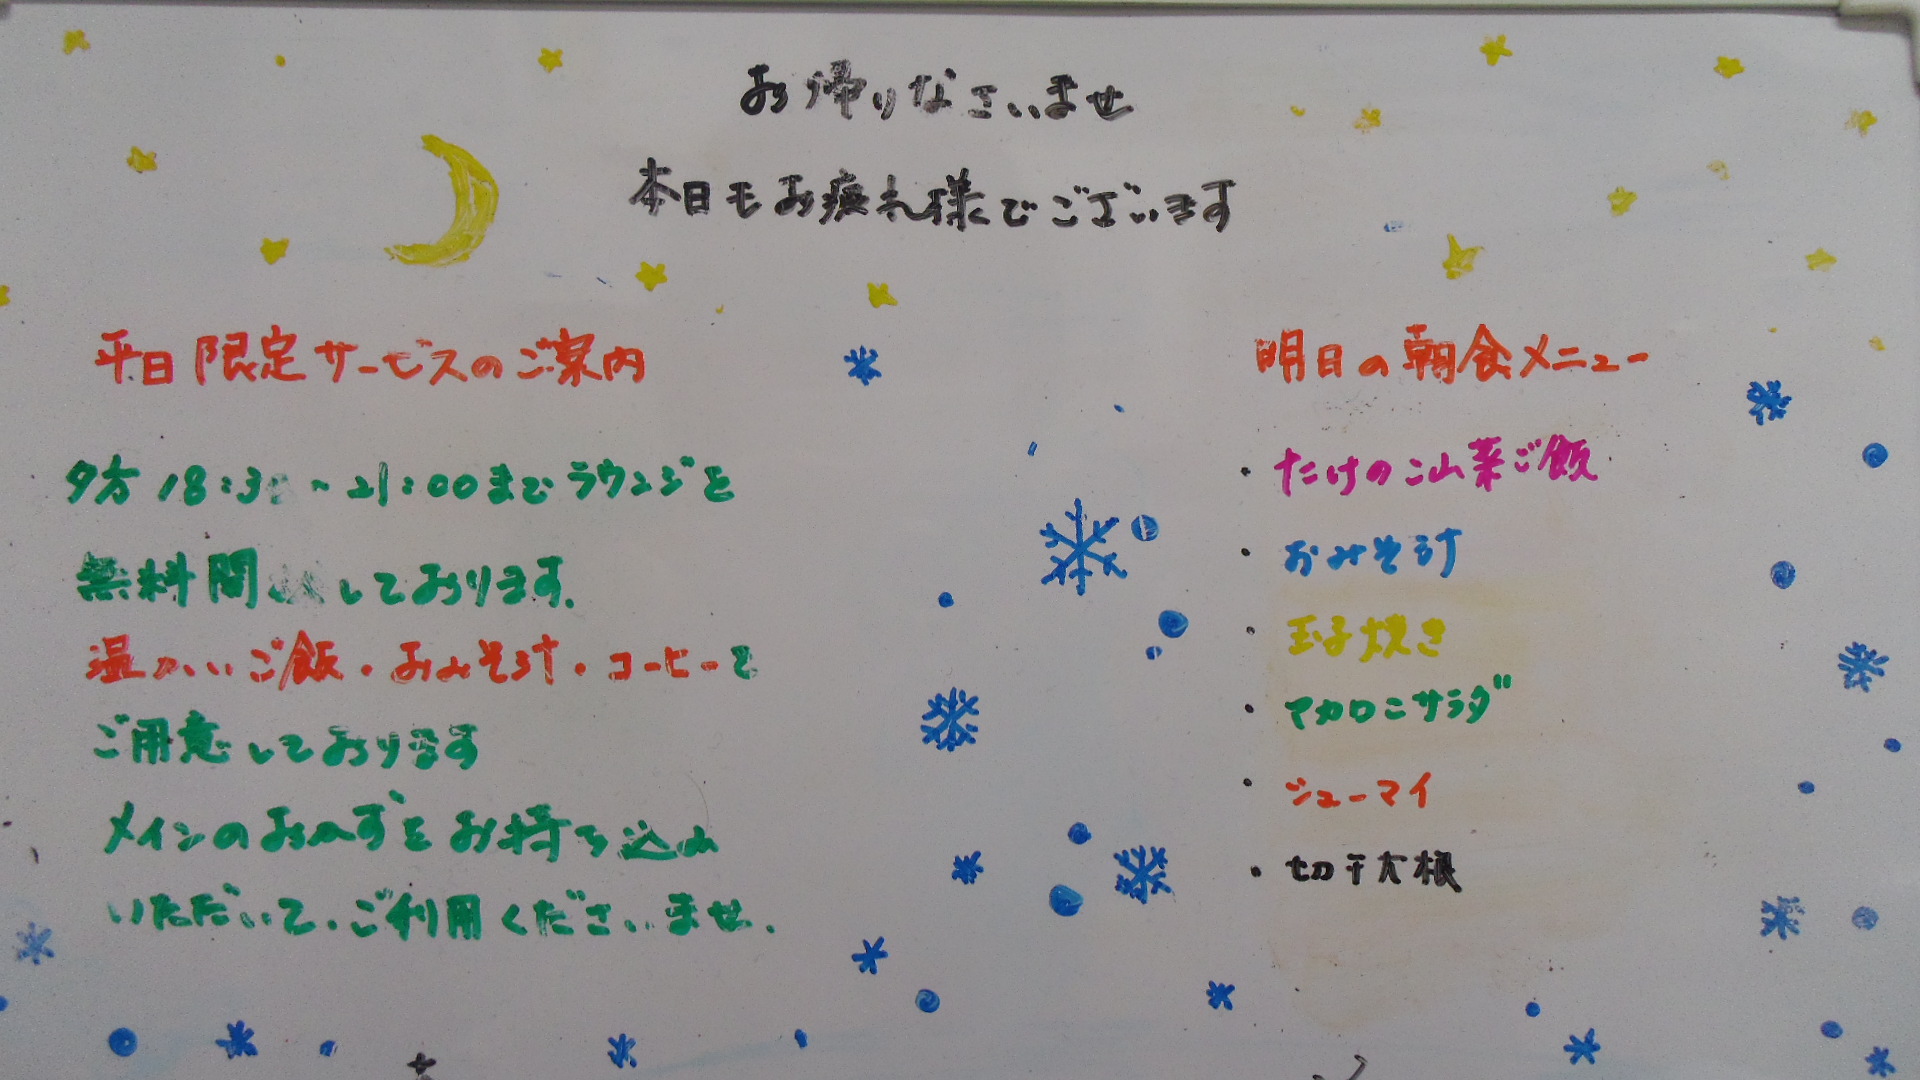 お帰りなさいませ
本日もお疲れ様でございます
平日限定サービスのご案内
夕方 18:30 ~ 21:00までラウンジを
無料開 しております.
温かいご飯・おみそ汁・コーヒーを
ご用意しております
メインのおかずをお持ち込み
いただいて、ご利用くださいませ.
明日の朝食メニュー
・たけのこ山菜ご飯
・おみそ汁
・玉子焼き
・マカロニサラダ
・シューマイ
・切干大根